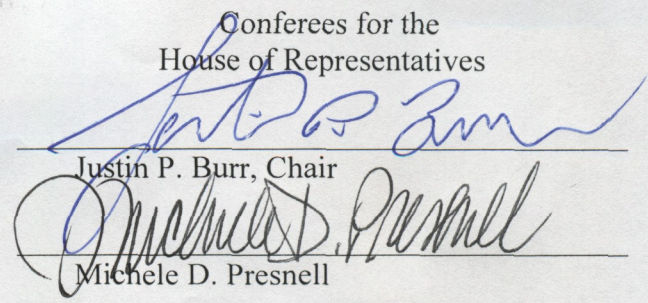 Conferees for the
House of Representatives
Justin P. Burr
Justin P. Burr, Chair
Michele D. Presnell
Michele D. Presnell